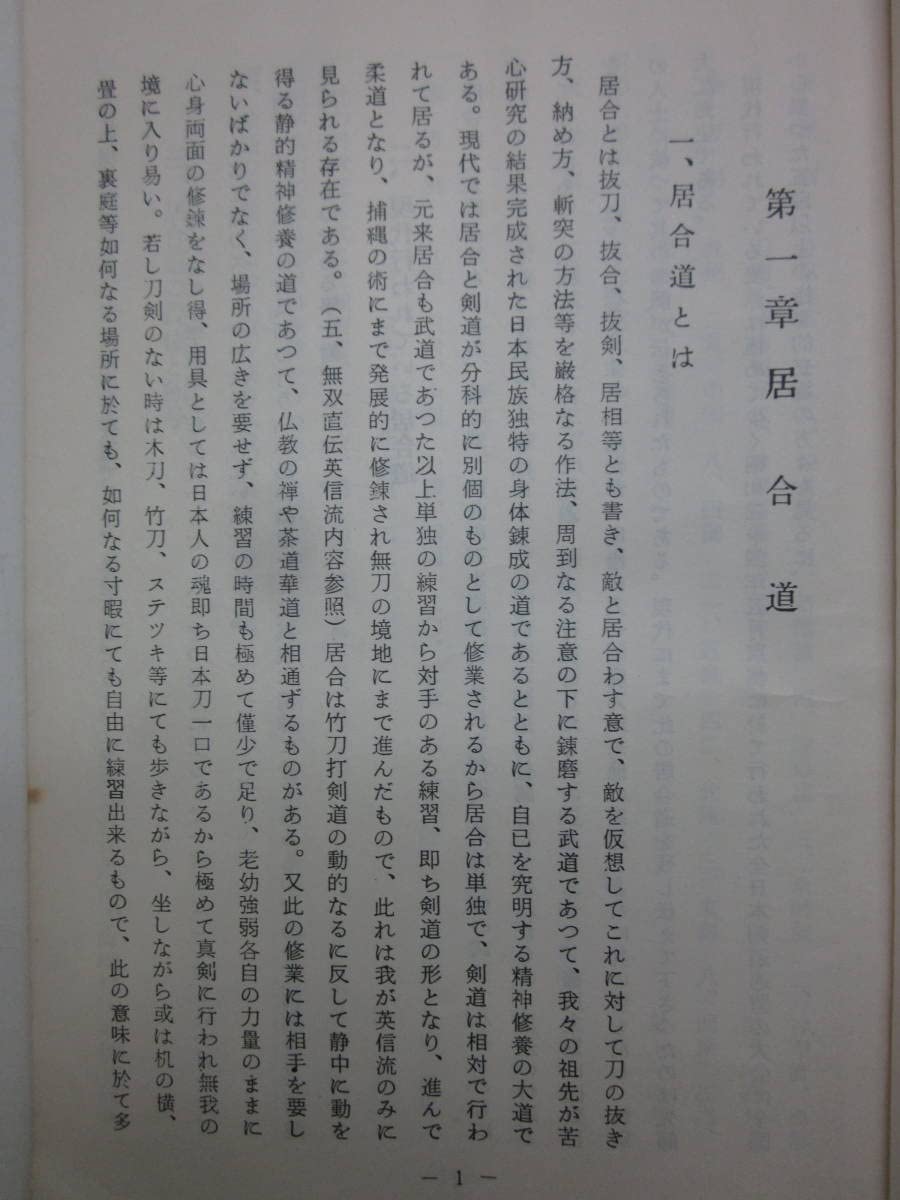 第一章居合道
一、居合道とは
居合とは抜刀、抜合、抜剣、居相等とも書き、敵と居合わす意で、敵を仮想してこれに対して刀の抜き
方、納め方、斬突の方法等を厳格なる作法、周到なる注意の下に錬磨する武道であつて、我々の祖先が苦
心研究の結果完成された日本民族独特の身体錬成の道であるとともに、自已を究明する精神修養の大道で
ある。現代では居合と剣道が分科的に別個のものとして修業されるから居合は単独で、剣道は相対で行わ
れて居るが、元来居合も武道であつた以上単独の練習から対手のある練習、即ち剣道の形となり、進んで
柔道となり、捕縄の術にまで発展的に修錬され無刀の境地にまで進んだもので、此れは我が英信流のみに
見られる存在である。（五、無双直伝英信流内容参照）居合は竹刀打剣道の動的なるに反して静中に動を
得る静的精神修養の道であつて、仏教の禅や茶道華道と相通ずるものがある。又此の修業には相手を要し
ないばかりでなく、場所の広きを要せず、練習の時間も極めて僅少で足り、老幼強弱各自の力量のままに
心身両面の修錬をなし得、用具としては日本人の魂即ち日本刀一口であるから極めて真剣に行われ無我の
境に入り易い。若し刀剣のない時は木刀、竹刀、ステツキ等にても歩きながら、坐しながら或は机の横、
畳の上、裏庭等如何なる場所に於ても、如何なる寸暇にても自由に練習出来るもので、此の意味に於て多
— 1 —